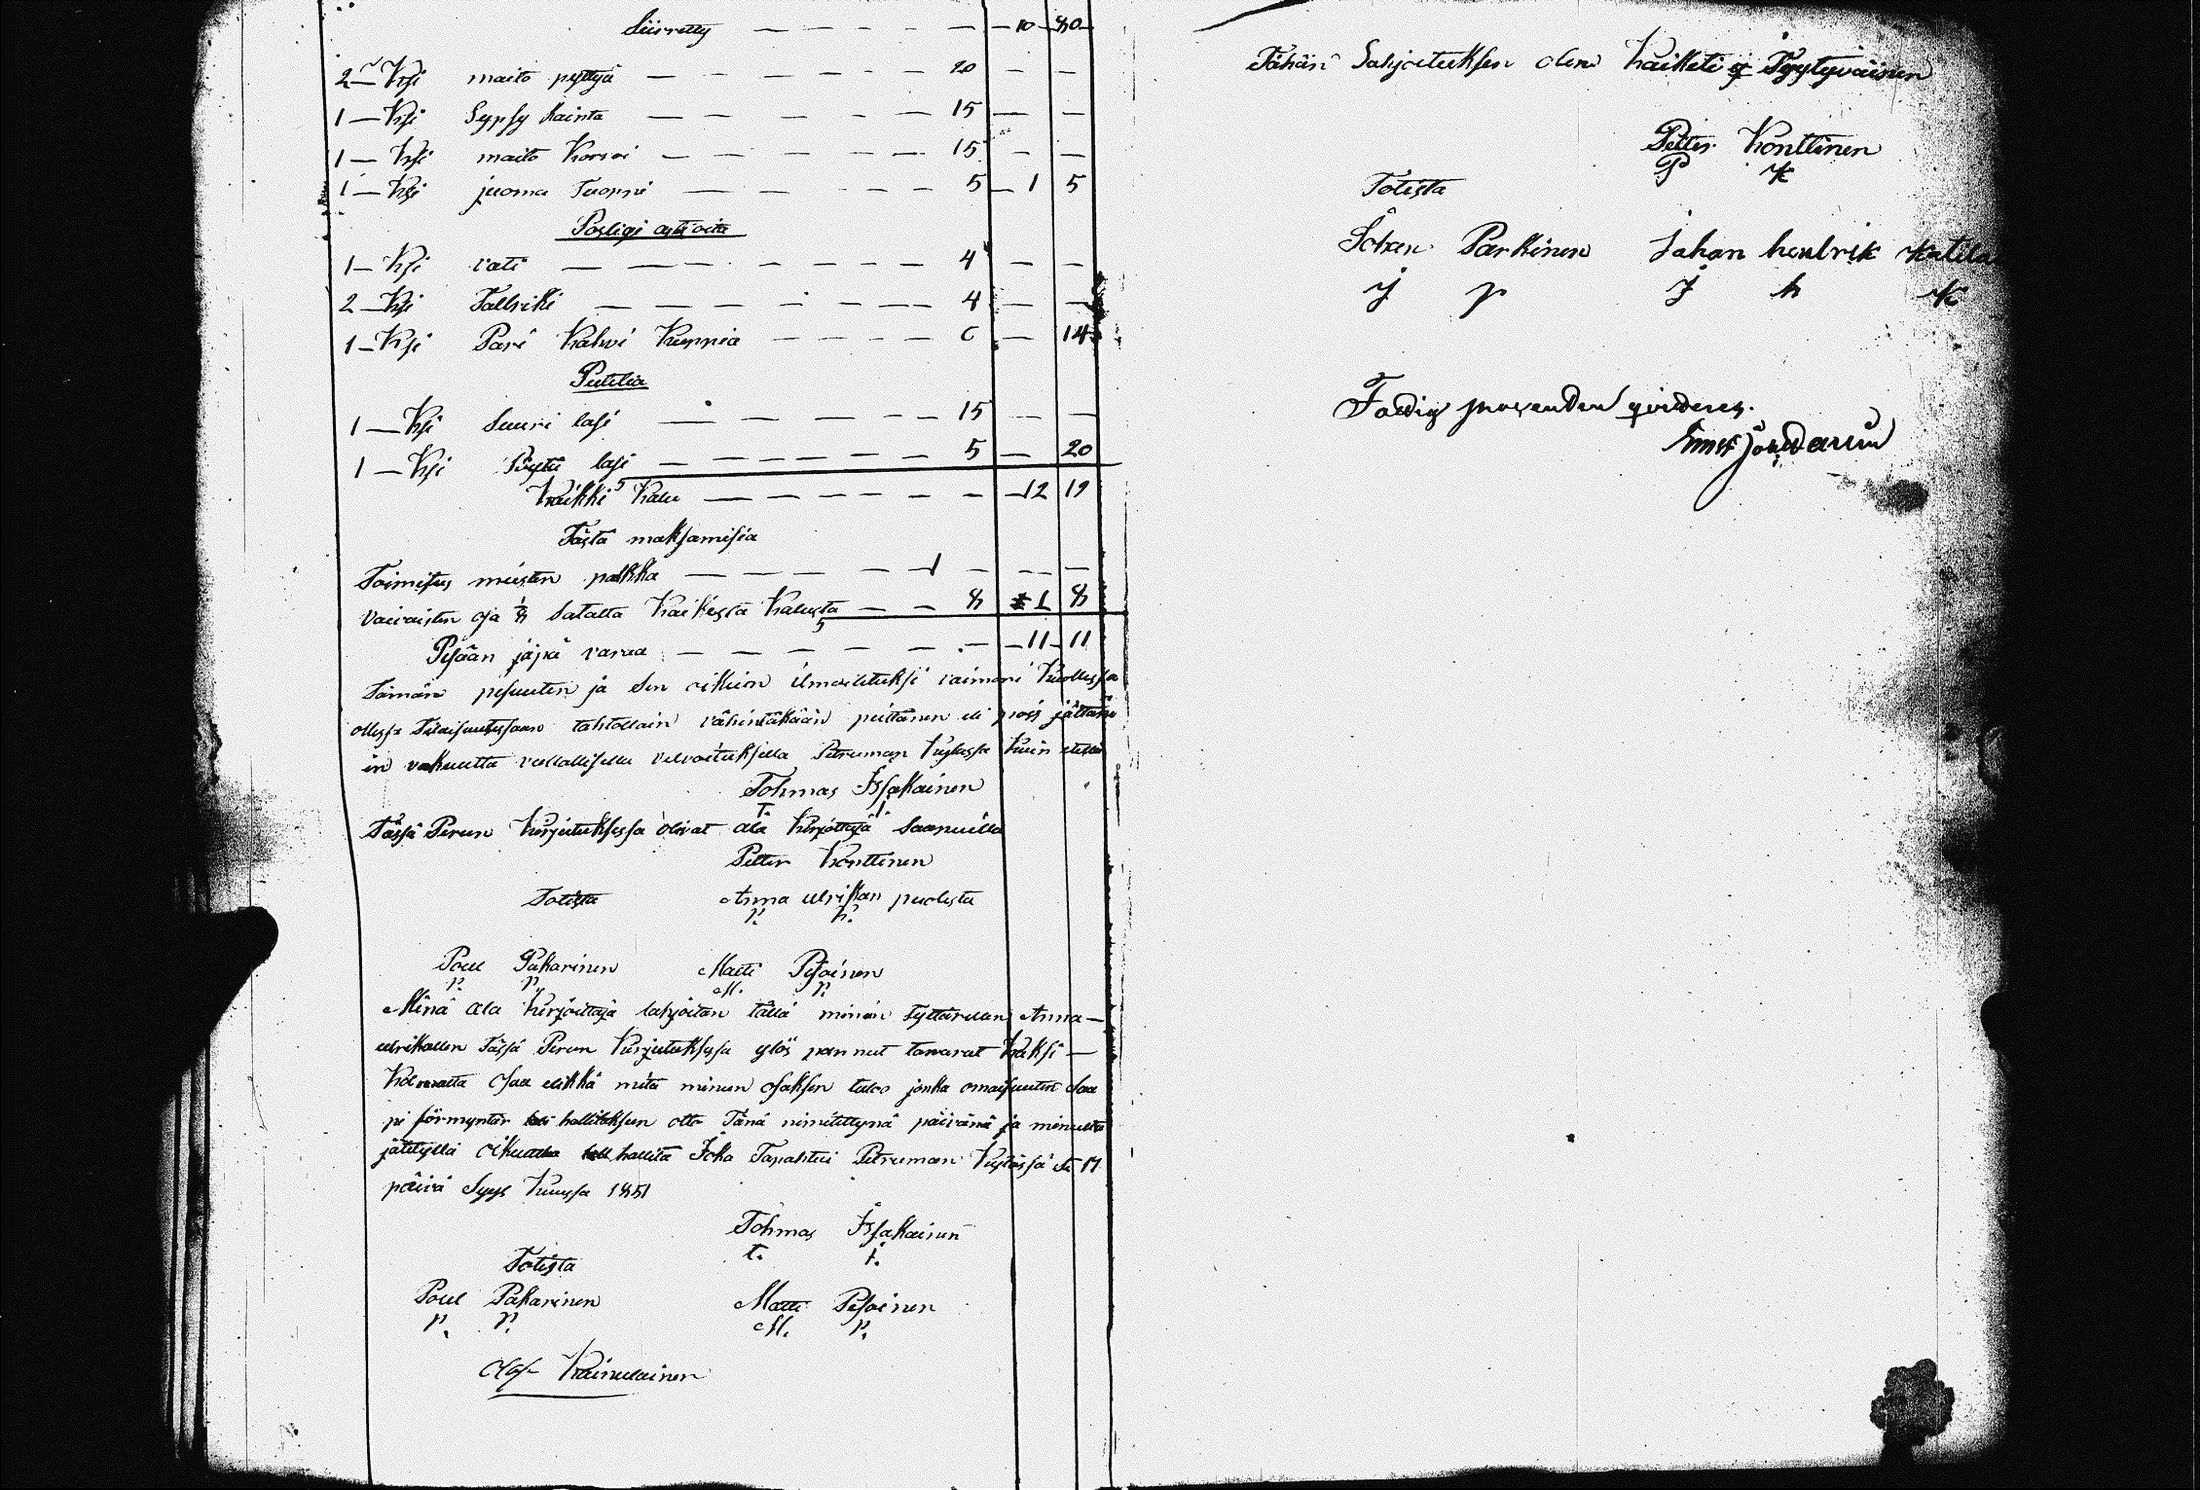 Siirretty — — — — — 10 80
2 — Kpi maito pyttyä — — — — — 20 — —
1 — Kpi Lypsy kainta — — — — — 15 — —
1 — Kpi maito Korvoi — — — — — 15 — —
1 — Kpi juoma Tuoppi — — — — — 5 — 1 5
Posligi astioita
1 — Kpi vati — — — — — 4 — —
2 — Kpi Tallriki — — — — — 4 — —
1 — Kpi Pari Kahvi Kuppia — — — — 6 — 14
Putelia
1 — Kpi Suuri lasi — — — — 15 — —
1 — Kpi Pöytä lasi — — — — — 5 — 20
Kaikki Kalu — — — — — 12 19
Tästä maksamisia
Toimitus miesten palkka — — — — 1 — — —
Vaivaisten osa 1/8 Satalta Kaikesta Kalusta — — 8 1 8
Pesään jäpi varaa — — — — — 11 11
Tämän pesuuten ja Sen oikian ilmoitetuksi vaimoni Kuollessa
ollessa Tilaisuutessaan tahtollain vähintäkään peittämen eli pois jättämä
in vakuutta vallallisella velvoituksella Petruman Kylässä Kuin etellä
Tohmas Issakainen
T. I.
Tässä Perun Kirjutuksessa olivat ala Kirjottaja Saapuilla
Petter Konttinen
Totista Anna ulrikan puolesta
p. k.
Poul Pakarinen Matti Pesoinen
p. p. M. p.
Minä ala Kirjoittaja lahjoitan tällä minun Tyttärellen Anna —
ulrikallen Tässä Perun Kirjutuksessa ylös pannut tavarat Kaksi —
Kolmatta Osaa elikkä mitä minun osaksen tuloo jonka omaisuuten Saa
pi förmyntär hallituksen otta Tänä nimitettynä päivänä ja minulta
jätetyllä oikualla hallita Joka Tapahtui Petruman Kylässä 17
päivä Syys Kuussa 1851
Tohmas Issakainen
t. i.
Totista
Poul Pakarinen Matti Pesoinen
p. p. M. p.
Olof Kainulainen
Tähän Lahjoituksen olen Kaiketi Tyytyväinen
Petter Konttinen
P K
Totista
Johan Parkinen Johan henbrik Katila
J p J h K